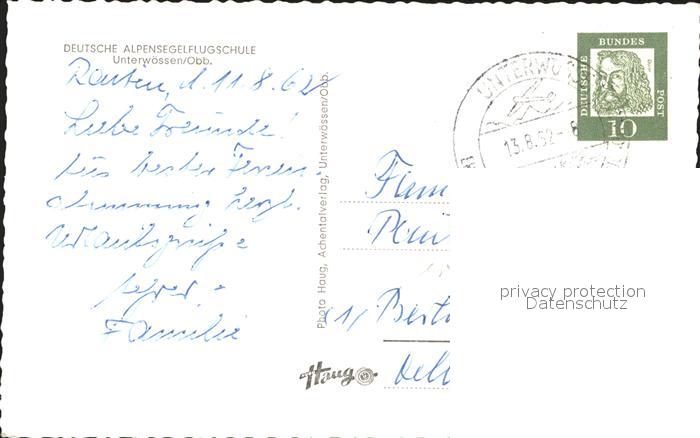 DEUTSCHE ALPENSEGELFLUGSCHULE
Unterwössen/Obb.
d. 11.8.62
Liebe Freunde!
Aus bester Ferien-
stimmung herzl.
Urlaubsgrüße
Familie
Photo Haug, Achentalverlag, Unterwössen/Obb.
Haug
Fam
DEUTSCHE BUNDES POST
10
UNTERWÖ
13.8.62-8
privacy protection
Datenschutz